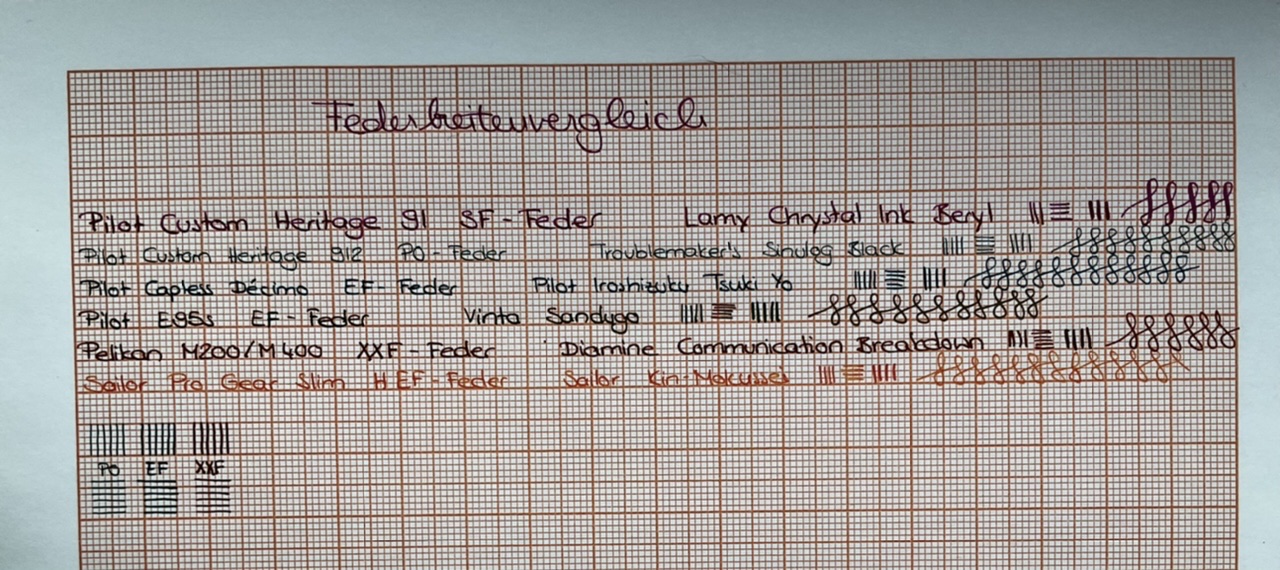 Federbreitenvergleich
Pilot Custom Heritage 91 SF-Feder Lamy Chrystal Ink Beryl
Pilot Custom Heritage 912 PO-Feder Troublemaker's Sinulog Black
Pilot Capless Décimo EF-Feder Pilot Iroshizuku Tsuki Yo
Pilot E95s EF-Feder Vinta Sandugo
Pelikan M200/M400 XXF-Feder Diamine Communication Breakdown
Sailor Pro Gear Slim H EF-Feder Sailor Kin-Mokussei
PO EF XXF